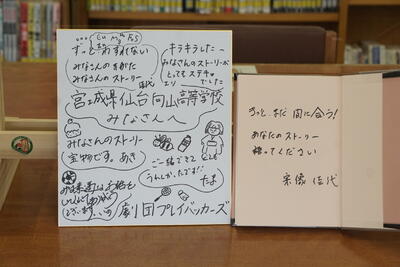 ずっと忘れない
みなさんのすがた
みなさんのストーリー
佳代
キラキラした
みなさんのストーリーが
とってもステキ
でした
エリ
宮城県仙台向山高等学校
みなさんへ
みなさんのストーリー
宝物です。あき
ご一緒できて
うれしかったです!
たま
ございます
劇団プレイバッカーズ
きっと、まだ間に合う!
あなたのストーリー
語ってください
宗像佳代